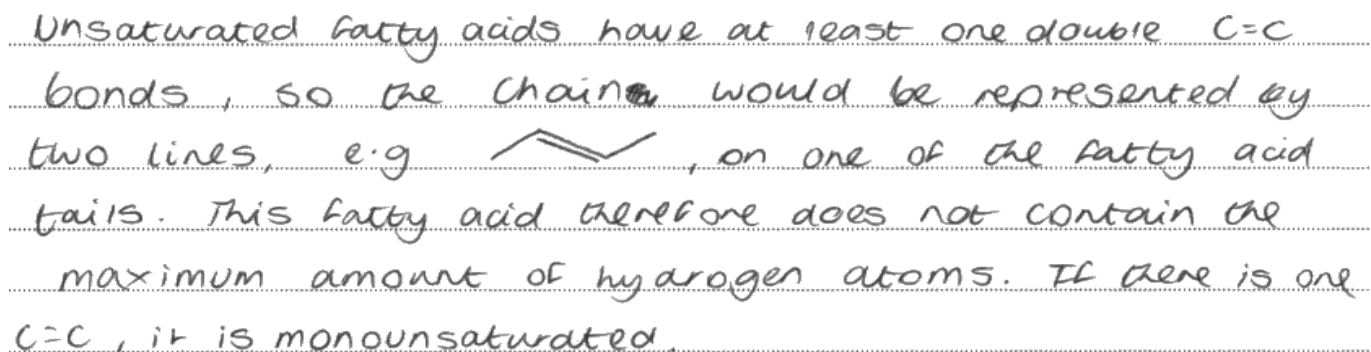 Unsaturated fatty acids have at least one double C=C
bonds, so the chain would be represented by
two lines, e.g , on one of the fatty acid
tails. This fatty acid therefore does not contain the
maximum amount of hydrogen atoms. If there is one
C=C, it is monounsaturated.